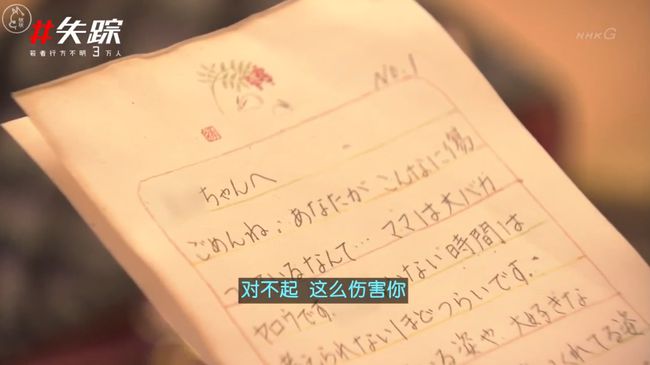 #失踪
若者行方不明3万人
NHK G
No.1
ちゃんへ
ごめんね；あなたが こんなに傷
いるなんて… ママは大バカ
ヤロウです。
ない時間は
えられないほどつらいです。
る姿や、大好きな
くれてる姿
对不起 这么伤害你